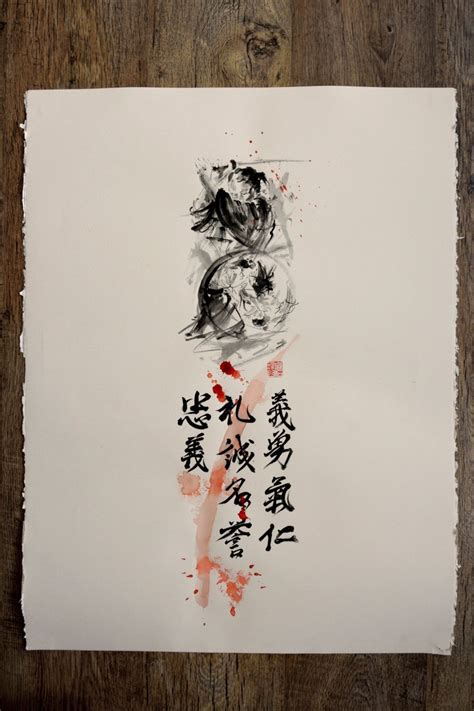 義勇氣仁
礼誠名誉
忠義